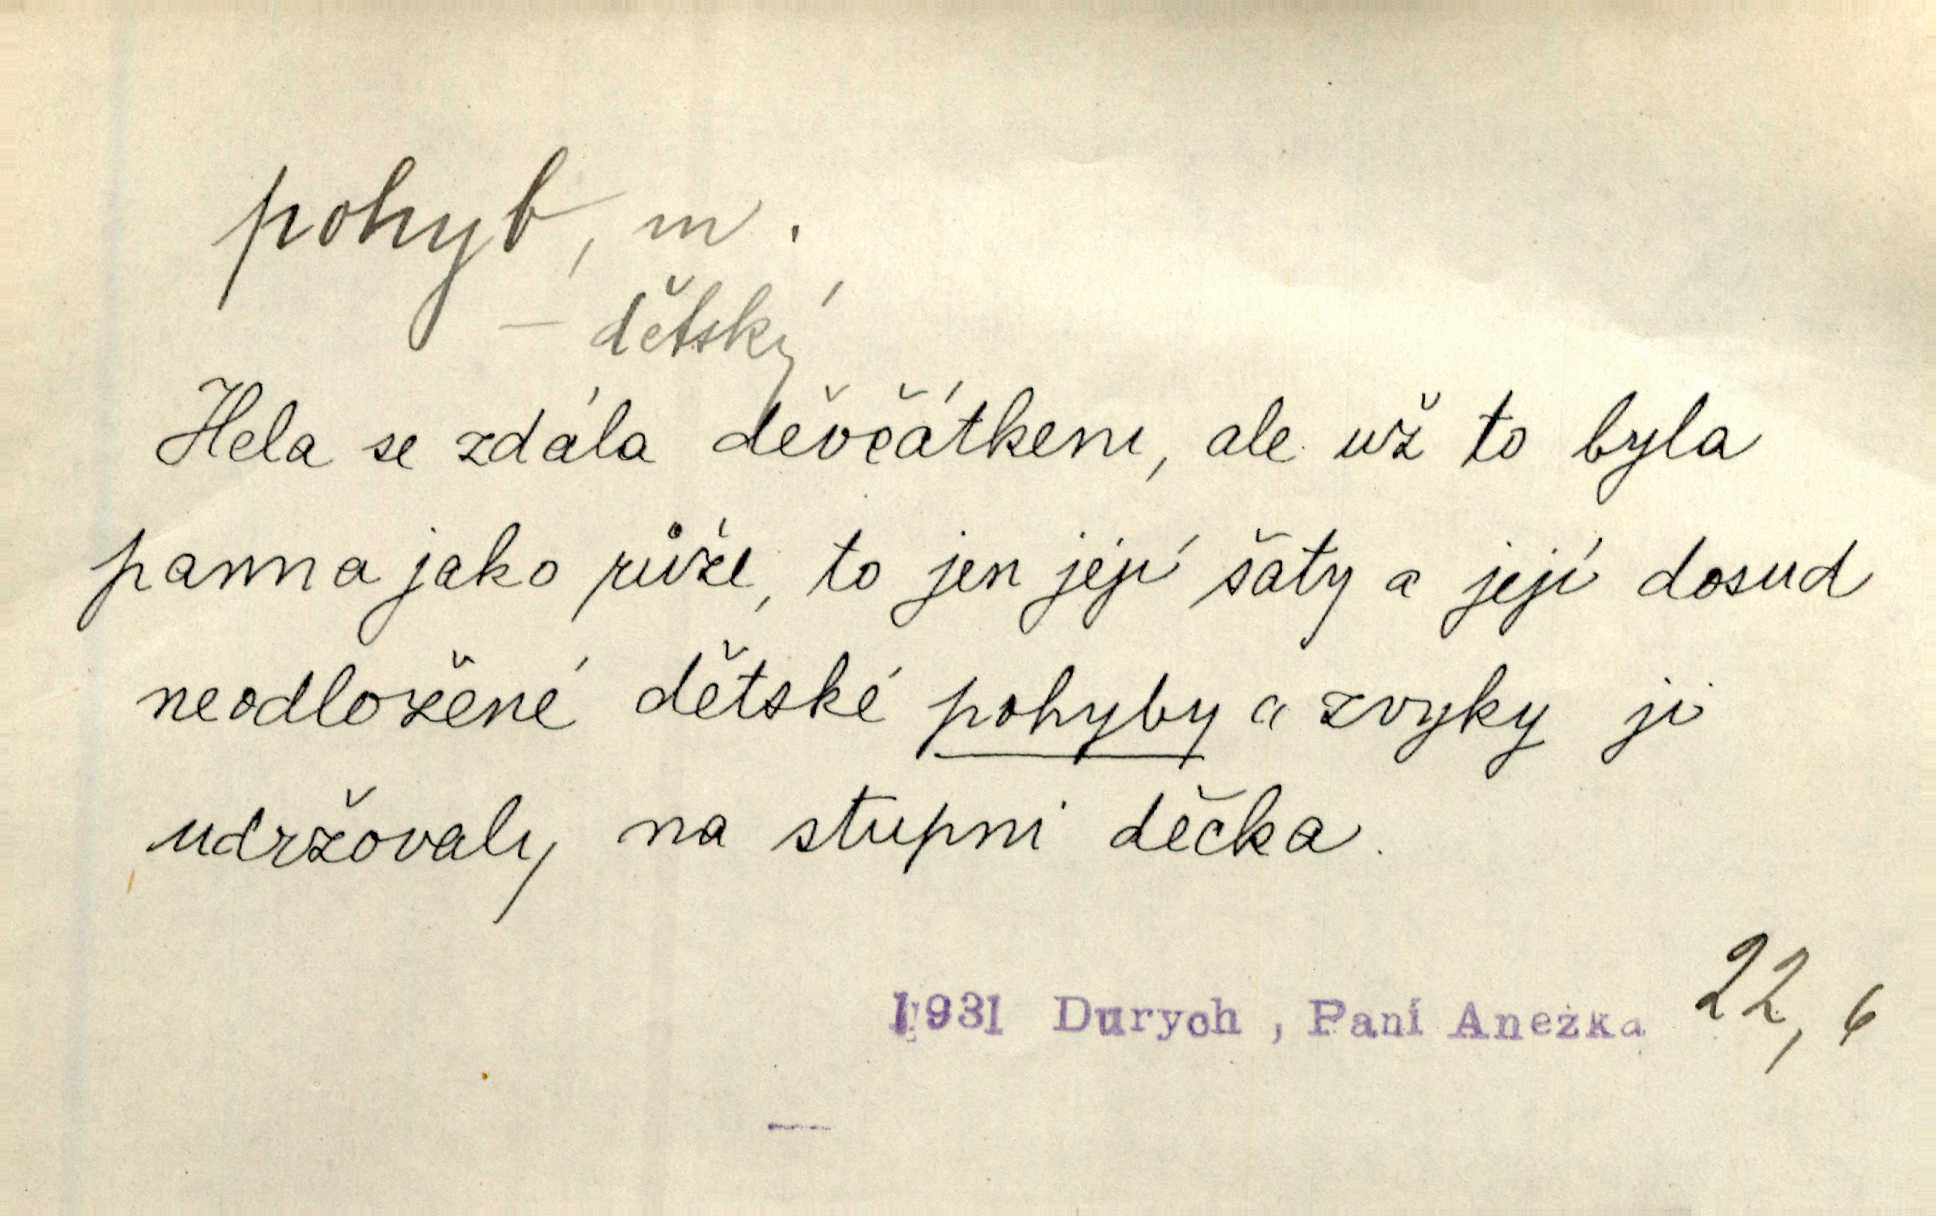 pohyb, m.
— dětský
Hela se zdála děvčátkem, ale už to byla
panna jako růže, to jen její šaty a její dosud
neodložené dětské pohyby a zvyky ji
udržovaly na stupni děcka.
1931 Durych, Paní Anežka 22, 6